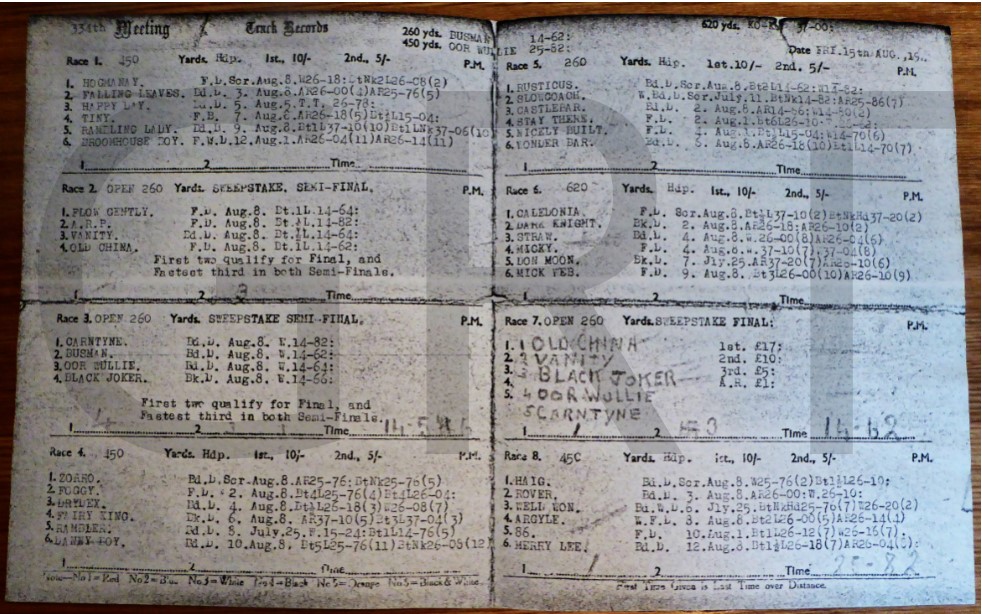 334th Meeting Track Records
260 yds. BUSMAN 14-62:
450 yds. OOR WULLIE 25-82:
620 yds.
Date FRI.15th AUG.,
Race 1. 450 Yards. Hdp. 1st., 10/- 2nd., 5/- P.M.
1. HOGMANAY. F.D. Scr.Aug.8.W26-18:BtNk2L26-08(2)
2. FALLING LEAVES. Bd.D. 3. Aug.8.AR26-00(4)AR25-76(5)
3. HAPPY DAY. Bd.D. 5. Aug.5.T.T. 26-78:
4. TINY. F.B. 7. Aug.8.AR26-18(5)
5. RAMBLING LADY. Bd.B. 9. Aug.8.
6. BROOMHOUSE BOY. F.W.D.12.Aug.1.AR26-04(11)AR26-14(11)
1 2 Time
Race 2. OPEN 260 Yards. SWEEPSTAKE. SEMI-FINAL. P.M.
1. FLOW GENTLY. F.D. Aug.8. Bt.1L.14-64:
2. A.R.P. F.D. Aug.8. Bt.
3. VANITY. Aug.8.
4. OLD CHINA. F.D. Aug.8. Bt.1L.14-62:
First two qualify for Final, and
Fastest third in both Semi-Finals.
1 2 3 Time
Race 3. OPEN 260 Yards. SWEEPSTAKE SEMI-FINAL. P.M.
1. CARNTYNE. Bd.D. Aug.8. W.14-82:
2. BUSMAN. Bd.D. Aug.8. W.14-62:
3. OOR WULLIE. Bd.D. Aug.8. W.14-64:
4. BLACK JOKER. Bk.D. Aug.8. W.14-66:
First two qualify for Final, and
Fastest third in both Semi-Finals.
1 2 Time
Race 4. 450 Yards. Hdp. 1st., 10/- 2nd., 5/- P.M.
1. ZORRO. Bd.D.Scr.Aug.8.AR25-76:BtNk25-76(5)
2. FOGGY. F.D. 2. Aug.8.
3. DRYDEX. Bd.D. 4. Aug.8.
4. FAIRY KING. Bk.D. 6. Aug.8. AR37-10(5)
5. RAMBLER. Bd.D. 8. July.25.F.15-24:
6. DANNY BOY. Bd.D. 10.Aug.8. Bt5L25-76(11)BtNk26-08(12)
1 2 Time
Note—No 1=Red No 2=Blue No 3=White No 4=Black No 5=Orange No 6=Black & White.
Race 5. 260 Yards. Hdp. 1st.10/- 2nd. 5/- P.M.
1. RUSTICUS. Bd.D.Scr.Aug.8.Bt2L14-62:
2. SLOWCOACH. W.Bd.D.Scr.July.11.BtNk14-82:AR25-86(7)
3. CASTLEPARK. Bd.D. 2. Aug.8.
4. STAY THERE. F.D. 2. Aug.1.
5. NICELY BUILT. F.D. 4. Aug.1.
6. YONDER BAR. Bd.D. 5. Aug.8.AR26-18(10)
1 2 Time
Race 6. 620 Yards. Hdp. 1st., 10/- 2nd., 5/- P.M.
1. CALEDONIA. F.D. Scr.Aug.8.
2. DARK KNIGHT. Bk.D. 2. Aug.8.AR26-18:AR26-10(2)
3. STRAW. Bd.D. 4. Aug.8.W.26-00(8)AR26-04(6)
4. MICKY. F.D. 4. Aug.8.W.37-10(7)
5. DON MOON. Bk.D. 7. Jly.25.AR37-20(7)AR26-10(6)
6. MICK FEB. F.D. 9. Aug.8.Bt3L26-00(10)AR26-10(9)
1 2 Time
Race 7. OPEN 260 Yards.SWEEPSTAKE FINAL: P.M.
1. 1 OLD CHINA 1st. £17:
2. 2 VANITY 2nd. £10:
3. 3 BLACK JOKER 3rd. £5:
4. 4 OOR WULLIE A.R. £1:
5. 5 CARNTYNE
1 1 2 3 Time 14-62
Race 8. 450 Yards. Hdp. 1st., 10/- 2nd., 5/- P.M.
1. HAIG. Bd.D.Scr.Aug.8.W25-76(2)
2. ROVER. Bd.D. 3. Aug.8.AR26-00:W.26-10:
3. WELL WON. Bd.W.D.6. Jly.25.BtNkHd25-76(7)W26-20(2)
4. ARGYLE. W.F.D. 8. Aug.8.Bt2L26-00(5)AR26-14(4)
5. 86. F.D. 10.Aug.1.Bt1L26-12(7)W26-16(7).
6. MERRY LEE. Bd.D. 12.Aug.8.
1 1 2 Time 25-82
Final Time Given is Last Time over Distance.
GRT